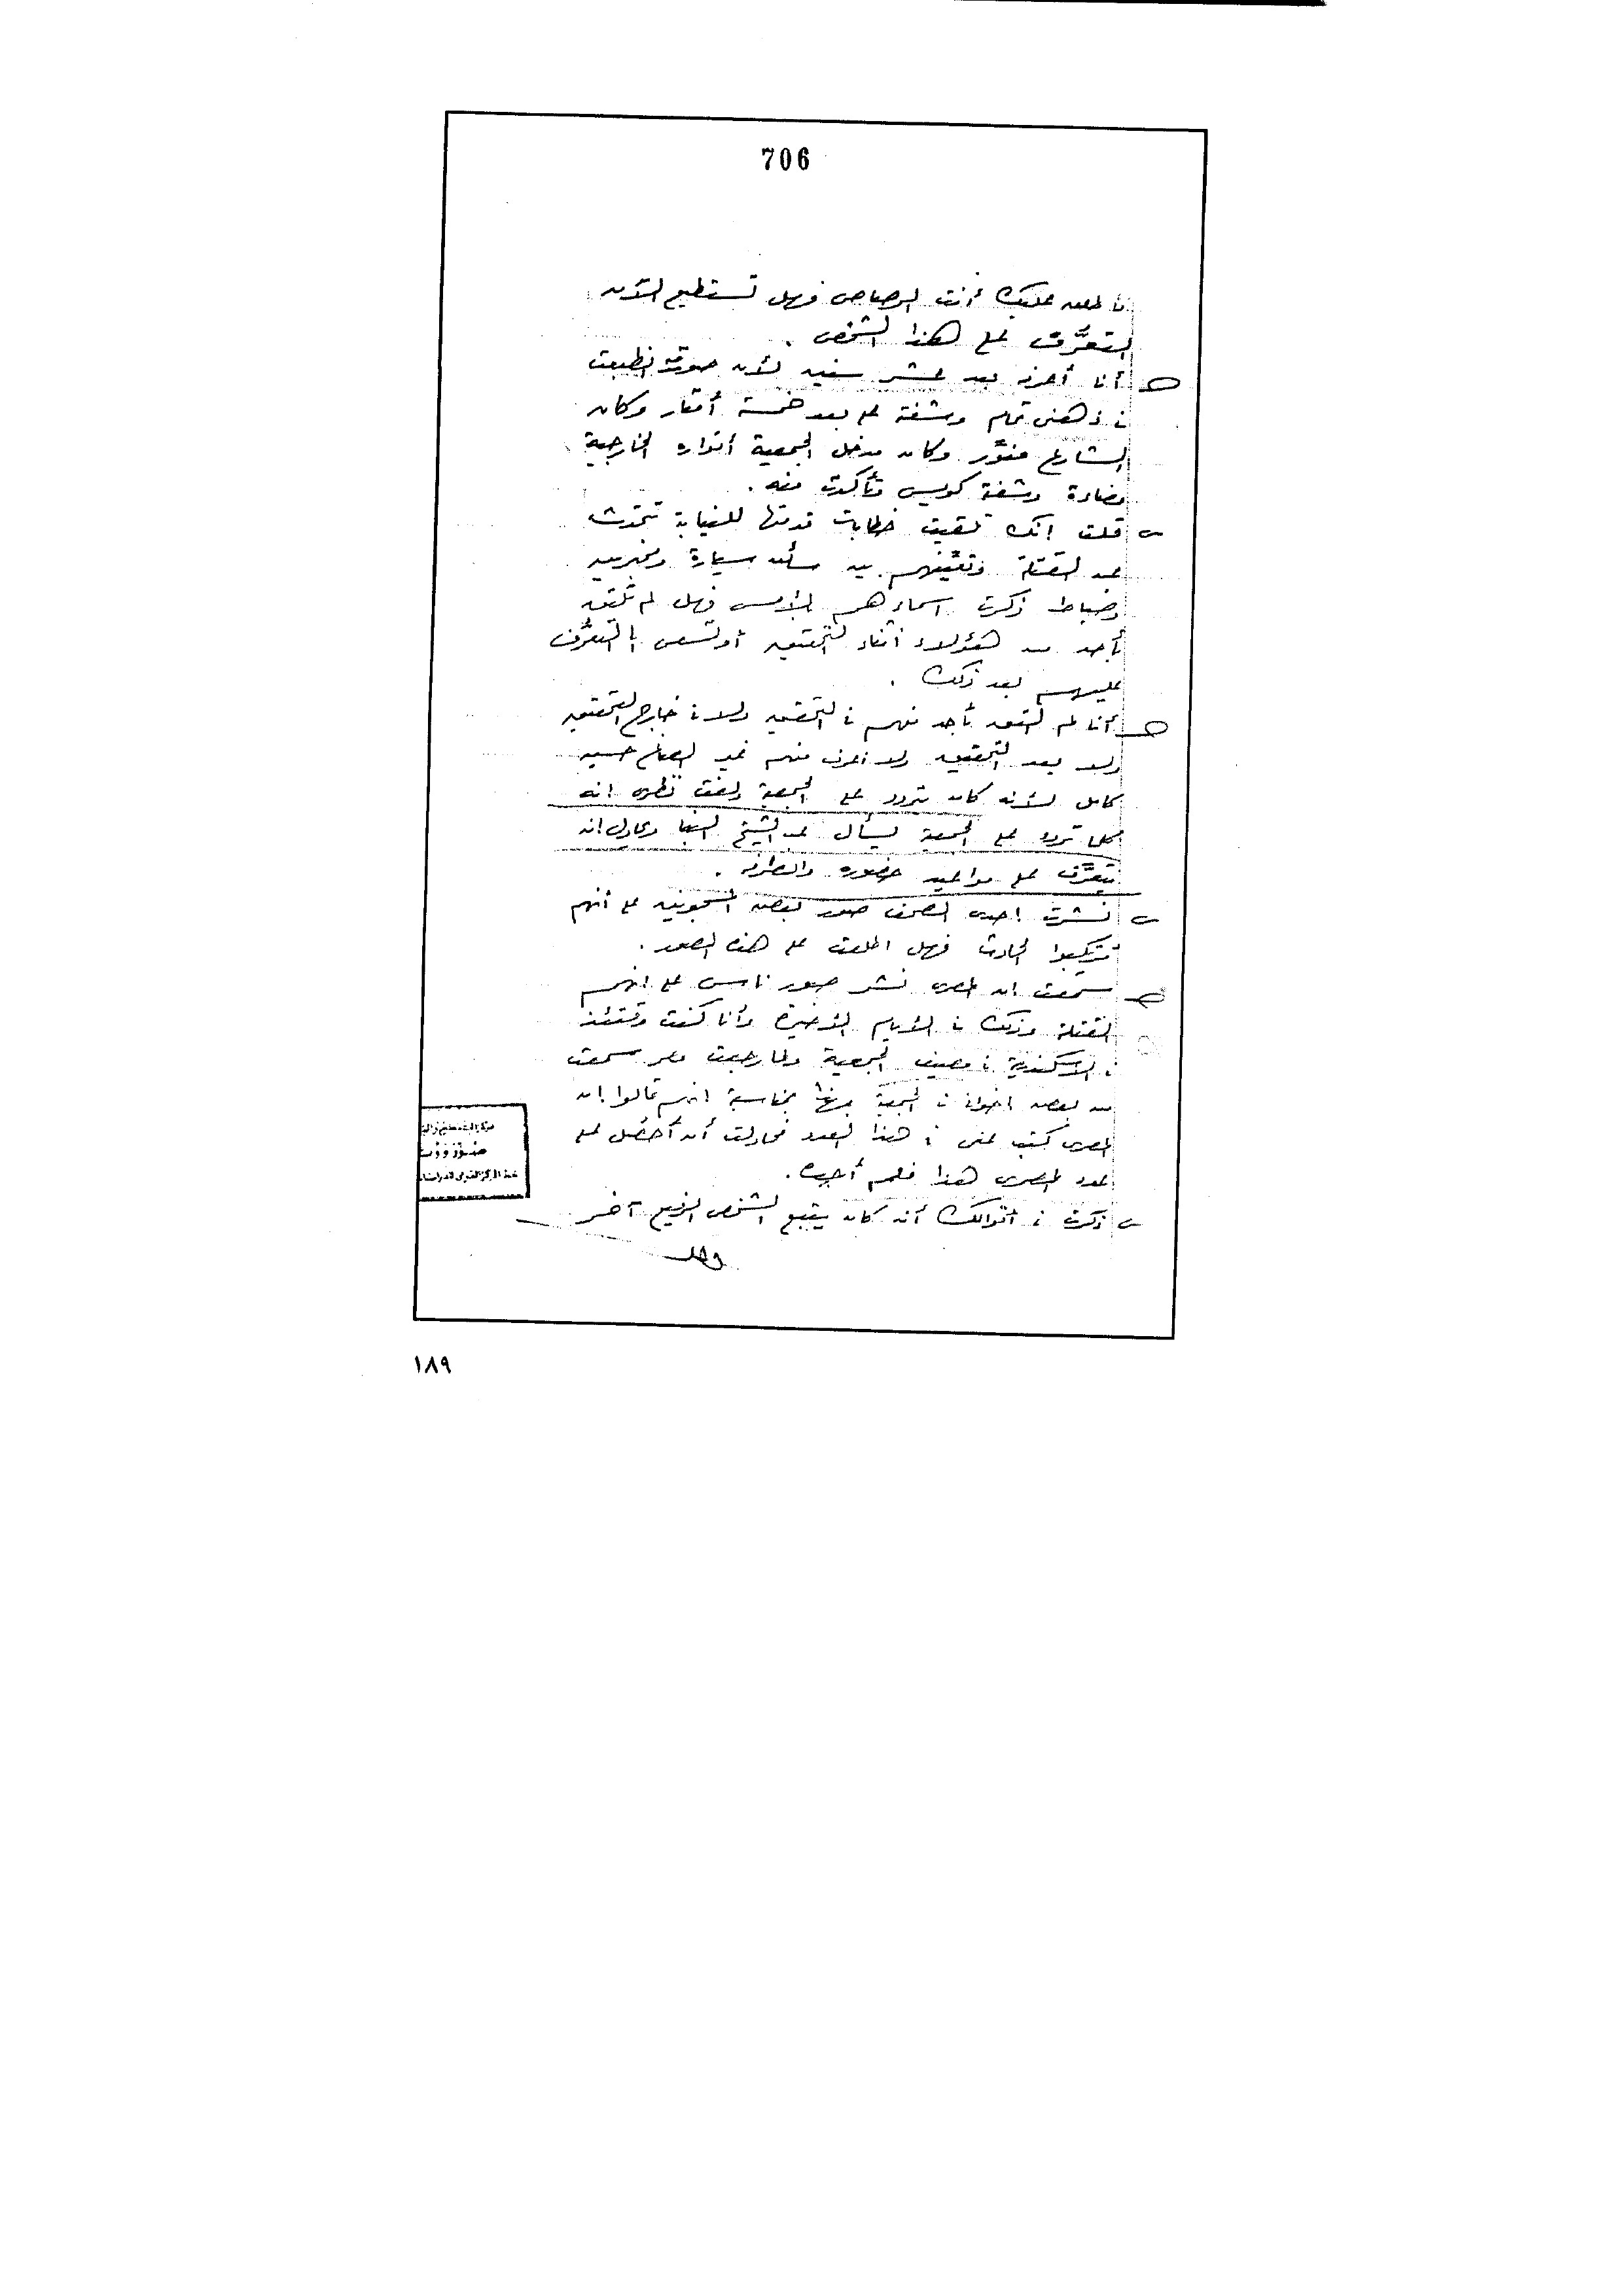 706
فأطلق عليك أنت الرصاص فهل تستطيع الآن
التعرَّف على هذا الشخص .
ج أنا أعرفه بعد عشر سنين لأن صورته انطبعت
في ذهني تمام وشفته على بعد خمسة أمتار وكان
الشارع منوَّر وكان مدخل الجمعية أنواره الخارجية
مضاءة وشفته كويس وتأكدت منه .
س قلت انك تلقيت خطابات قدمتها للنيابة تتحدث
عن القتلة وتعيّنهم بين سائق سيارة ومخبرين
وضباط ذكرت اسماءهم بالأمس فهل لم تلتق
بأحد من هؤلاء أثناء التحقيق أو تسعى الى التعرُّف
عليهم بعد ذلك .
ج أنا لم التق بأحد منهم في التحقيق ولا في خارج التحقيق
ولا بعد التحقيق ولا أعرف منهم غير الصاغ حسين
كامل لأنه كان يتردد على الجمعية ولفت نظرى انه
كلما تردد على الجمعية يسأل عن الشيخ البنا ويحاول ان
يتعرَّف على مواعيد حضوره وانصرافه .
س نشرت احدى الصحف صور بعض المسجونين على أنهم
مرتكبوا الحادث فهل اطلعت على هذه الصور .
ج سمعت ان المصرى نشر صور ناس على انهم
القتلة وذلك في الأيام الأخيرة وأنا كنت وقتئذ
في الاسكندرية في مصيف الجمعية ولما رجعت مصر سمعت
من بعض اخوانى في الجمعية بمناسبة انهم قالوا ان
المصرى كتب عنى في هذا العدد فحاولت أن أحصل على
عدد المصرى هذا فلم أجده .
س ذكرت في أقوالك أنه كان يتبع الشخص الرفيع آخر
وهل
١٨٩